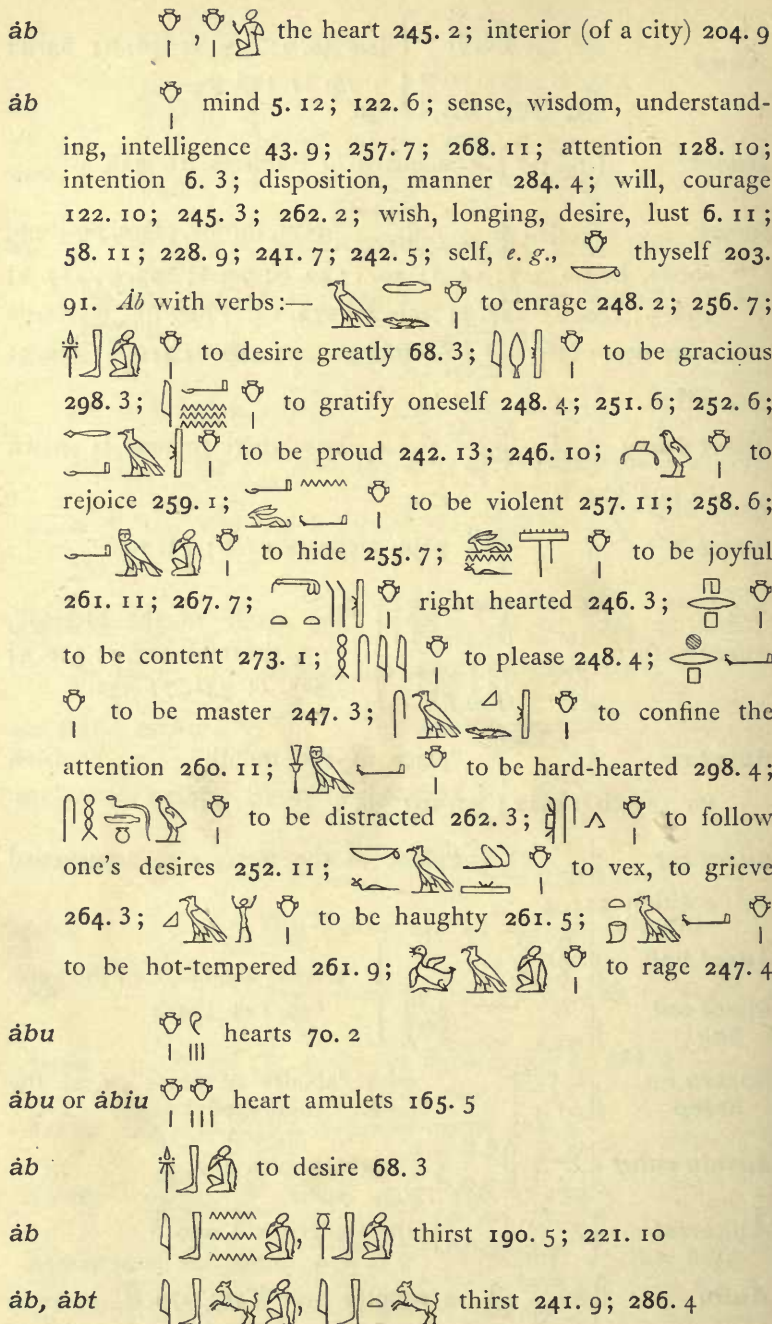 ȧb 𓄣𓏤, 𓄣𓏤𓀁 the heart 245. 2; interior (of a city) 204. 9
ȧb 𓄣𓏤 mind 5. 12; 122. 6; sense, wisdom, understand-
ing, intelligence 43. 9; 257. 7; 268. 11; attention 128. 10;
intention 6. 3; disposition, manner 284. 4; will, courage
122. 10; 245. 3; 262. 2; wish, longing, desire, lust 6. 11;
58. 11; 228. 9; 241. 7; 242. 5; self, e. g., 𓄣𓎡 thyself 203.
91. Ȧb with verbs:— 𓄣𓏤 to enrage 248. 2; 256. 7;
𓄣𓏤 to desire greatly 68. 3; 𓄣𓏤 to be gracious
298. 3; 𓄣𓏤 to gratify oneself 248. 4; 251. 6; 252. 6;
𓄣𓏤 to be proud 242. 13; 246. 10; 𓄣𓏤 to
rejoice 259. 1; 𓄣𓏤 to be violent 257. 11; 258. 6;
𓄣𓏤 to hide 255. 7; 𓄣𓏤 to be joyful
261. 11; 267. 7; 𓄣𓏤 right hearted 246. 3; 𓄣𓏤
to be content 273. 1; 𓎛𓋴𓇋𓇋 𓄣𓏤 to please 248. 4;
𓄣𓏤 to be master 247. 3; 𓄣𓏤 to confine the
attention 260. 11; 𓄣𓏤 to be hard-hearted 298. 4;
𓄣𓏤 to be distracted 262. 3; 𓄣𓏤 to follow
one's desires 252. 11; 𓄣𓏤 to vex, to grieve
264. 3; 𓄣𓏤 to be haughty 261. 5; 𓄣𓏤
to be hot-tempered 261. 9; 𓄣𓏤 to rage 247. 4
ȧbu 𓄣𓏤𓏲𓏥 hearts 70. 2
ȧbu or ȧbiu 𓄣𓏤𓄣𓏥 heart amulets 165. 5
ȧb 𓃀𓀁 to desire 68. 3
ȧb 𓇋𓃀𓈗𓀁, 𓃀𓀁 thirst 190. 5; 221. 10
ȧb, ȧbt 𓇋𓃀𓃙𓀁, 𓇋𓃀𓏏𓃙 thirst 241. 9; 286. 4